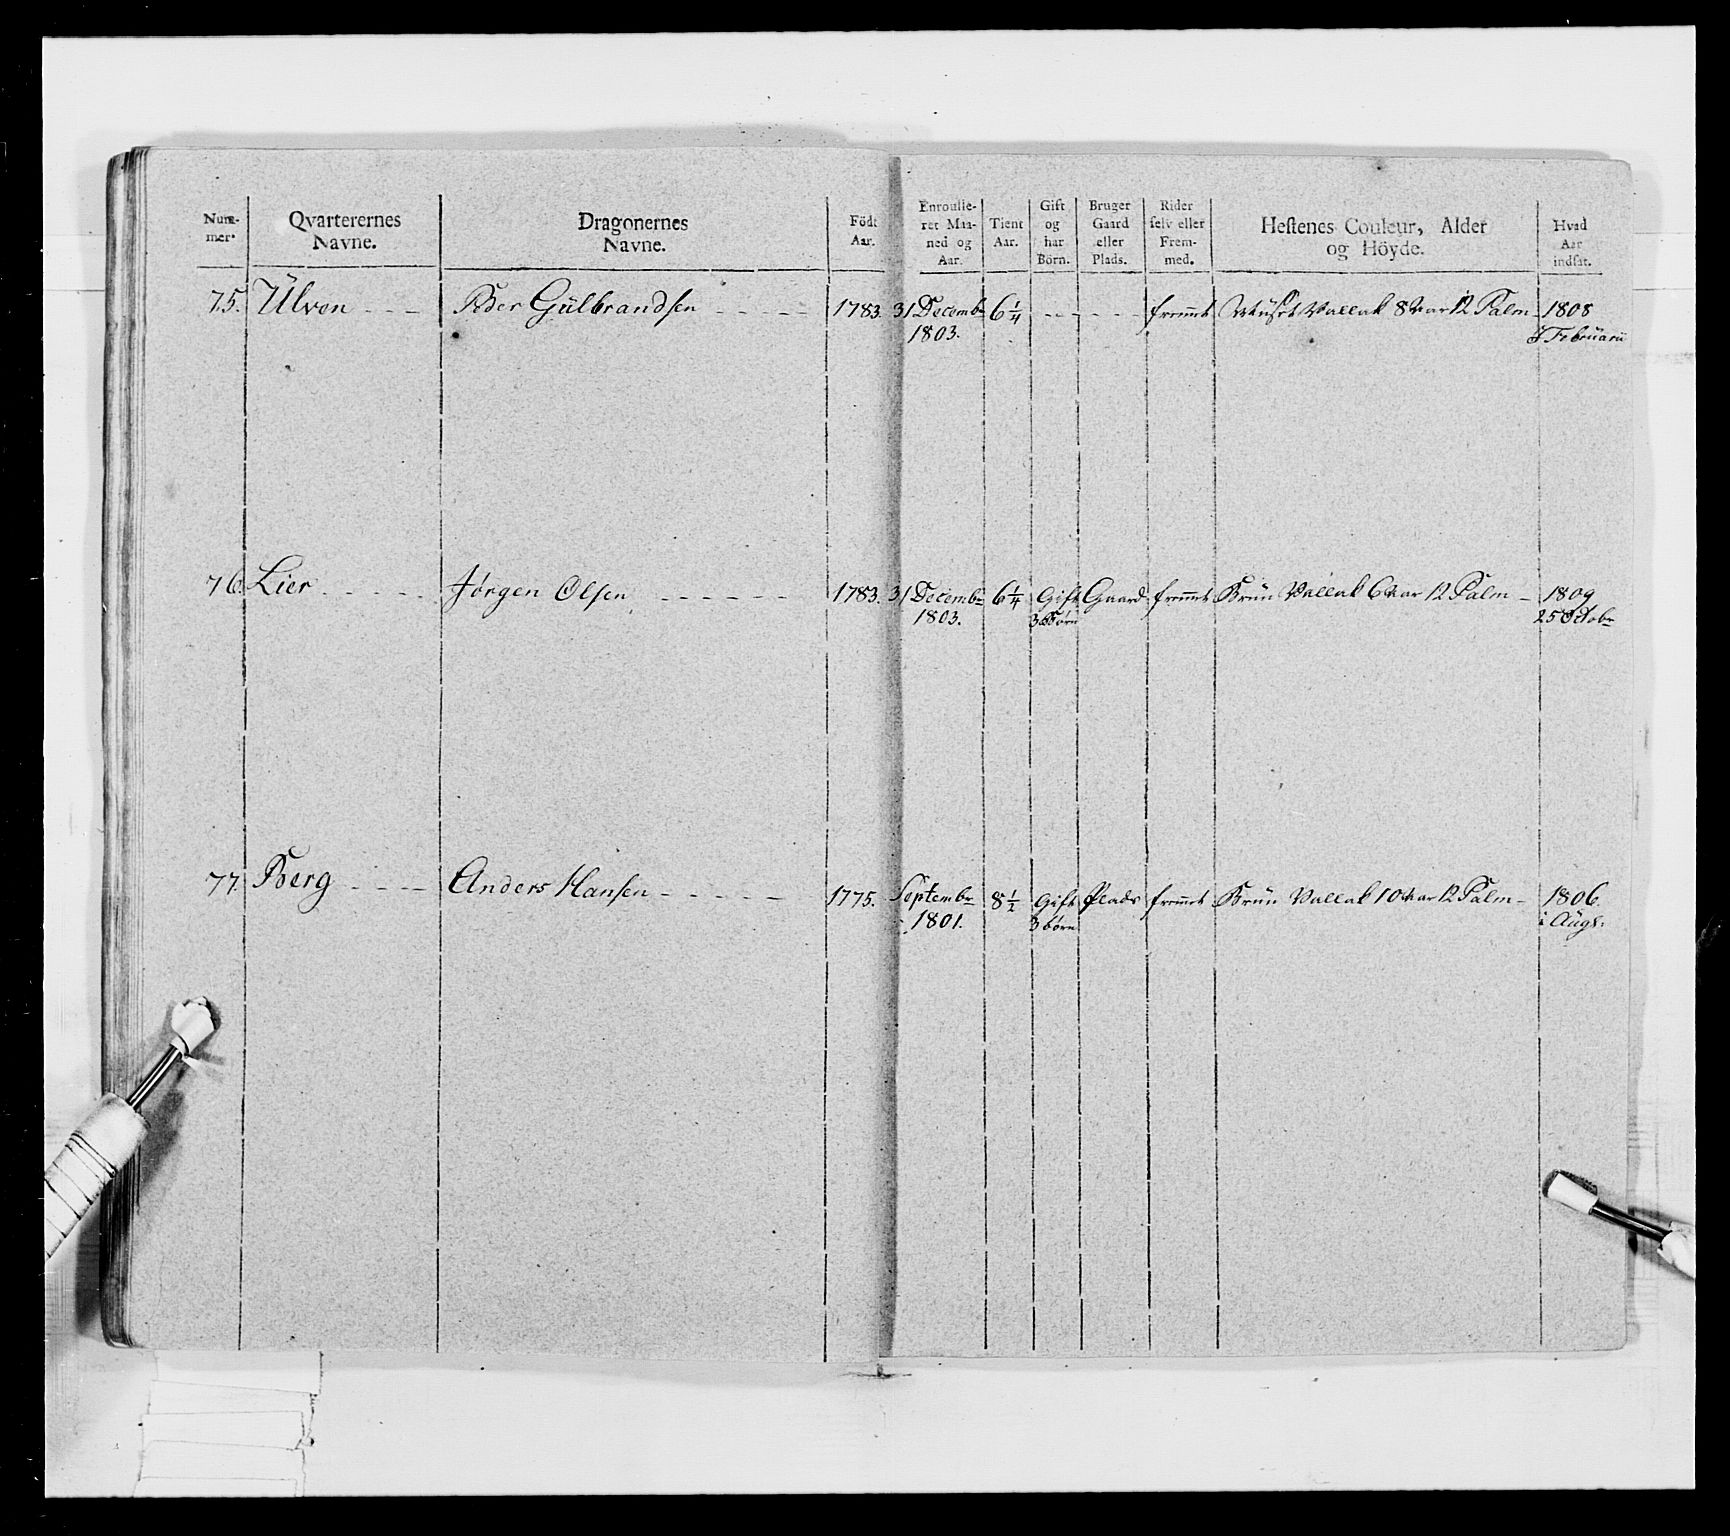 Num-
mer.
Qvarterernes
Navne.
Dragonernes
Navne.
Födt
Aar.
Enroulle-
ret Maa-
ned og
Aar.
Tient
Aar.
Gift
og
har
Börn.
Bruger
Gaard
eller
Plads.
Rider
selv eller
Frem-
med.
Hestenes Couleur, Alder
og Höyde.
Hvad
Aar
indsat.
75. Ulven - - - Peder Gulbrandsen - - - - - 1783. 31 Decembr 6 1/4 - - - - - fremmt Muset Vallak 8 Aar 12 Palm - 1808
1803. Februarii
76. Lier - - - - - Jørgen Olsen - - - - - - 1783. 31 Decembr 6 1/4 Gift Gaard fremmt Brun Vallak 6 Aar 12 Palm - 1809
1803. 3 Børn 25 Octobr
77. Berg - - - - Anders Hansen - - - - - 1775. Septembr 8 1/2 Gift Plads fremmt Brun Vallak 10 Aar 12 Palm - 1806.
1801. 3 børn i Augs: